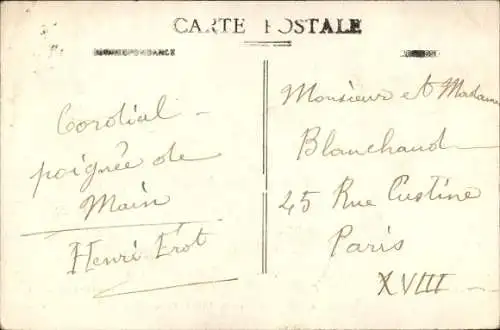 CARTE POSTALE
CORRESPONDANCE
Cordial
poignée de
Main
Henri Erot
Monsieur et Madame
Blanchaud
45 Rue Custine
Paris
XVIII